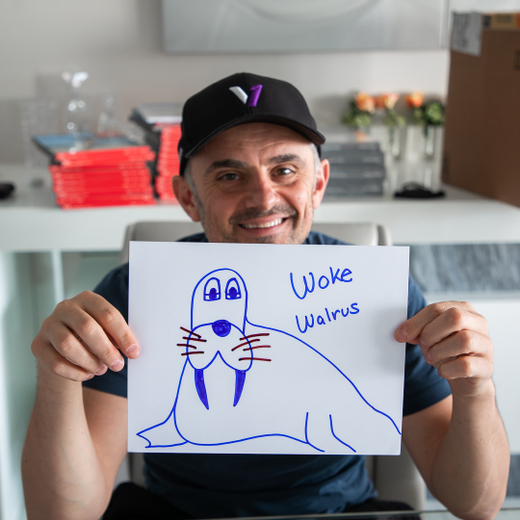 V1
Woke
Walrus